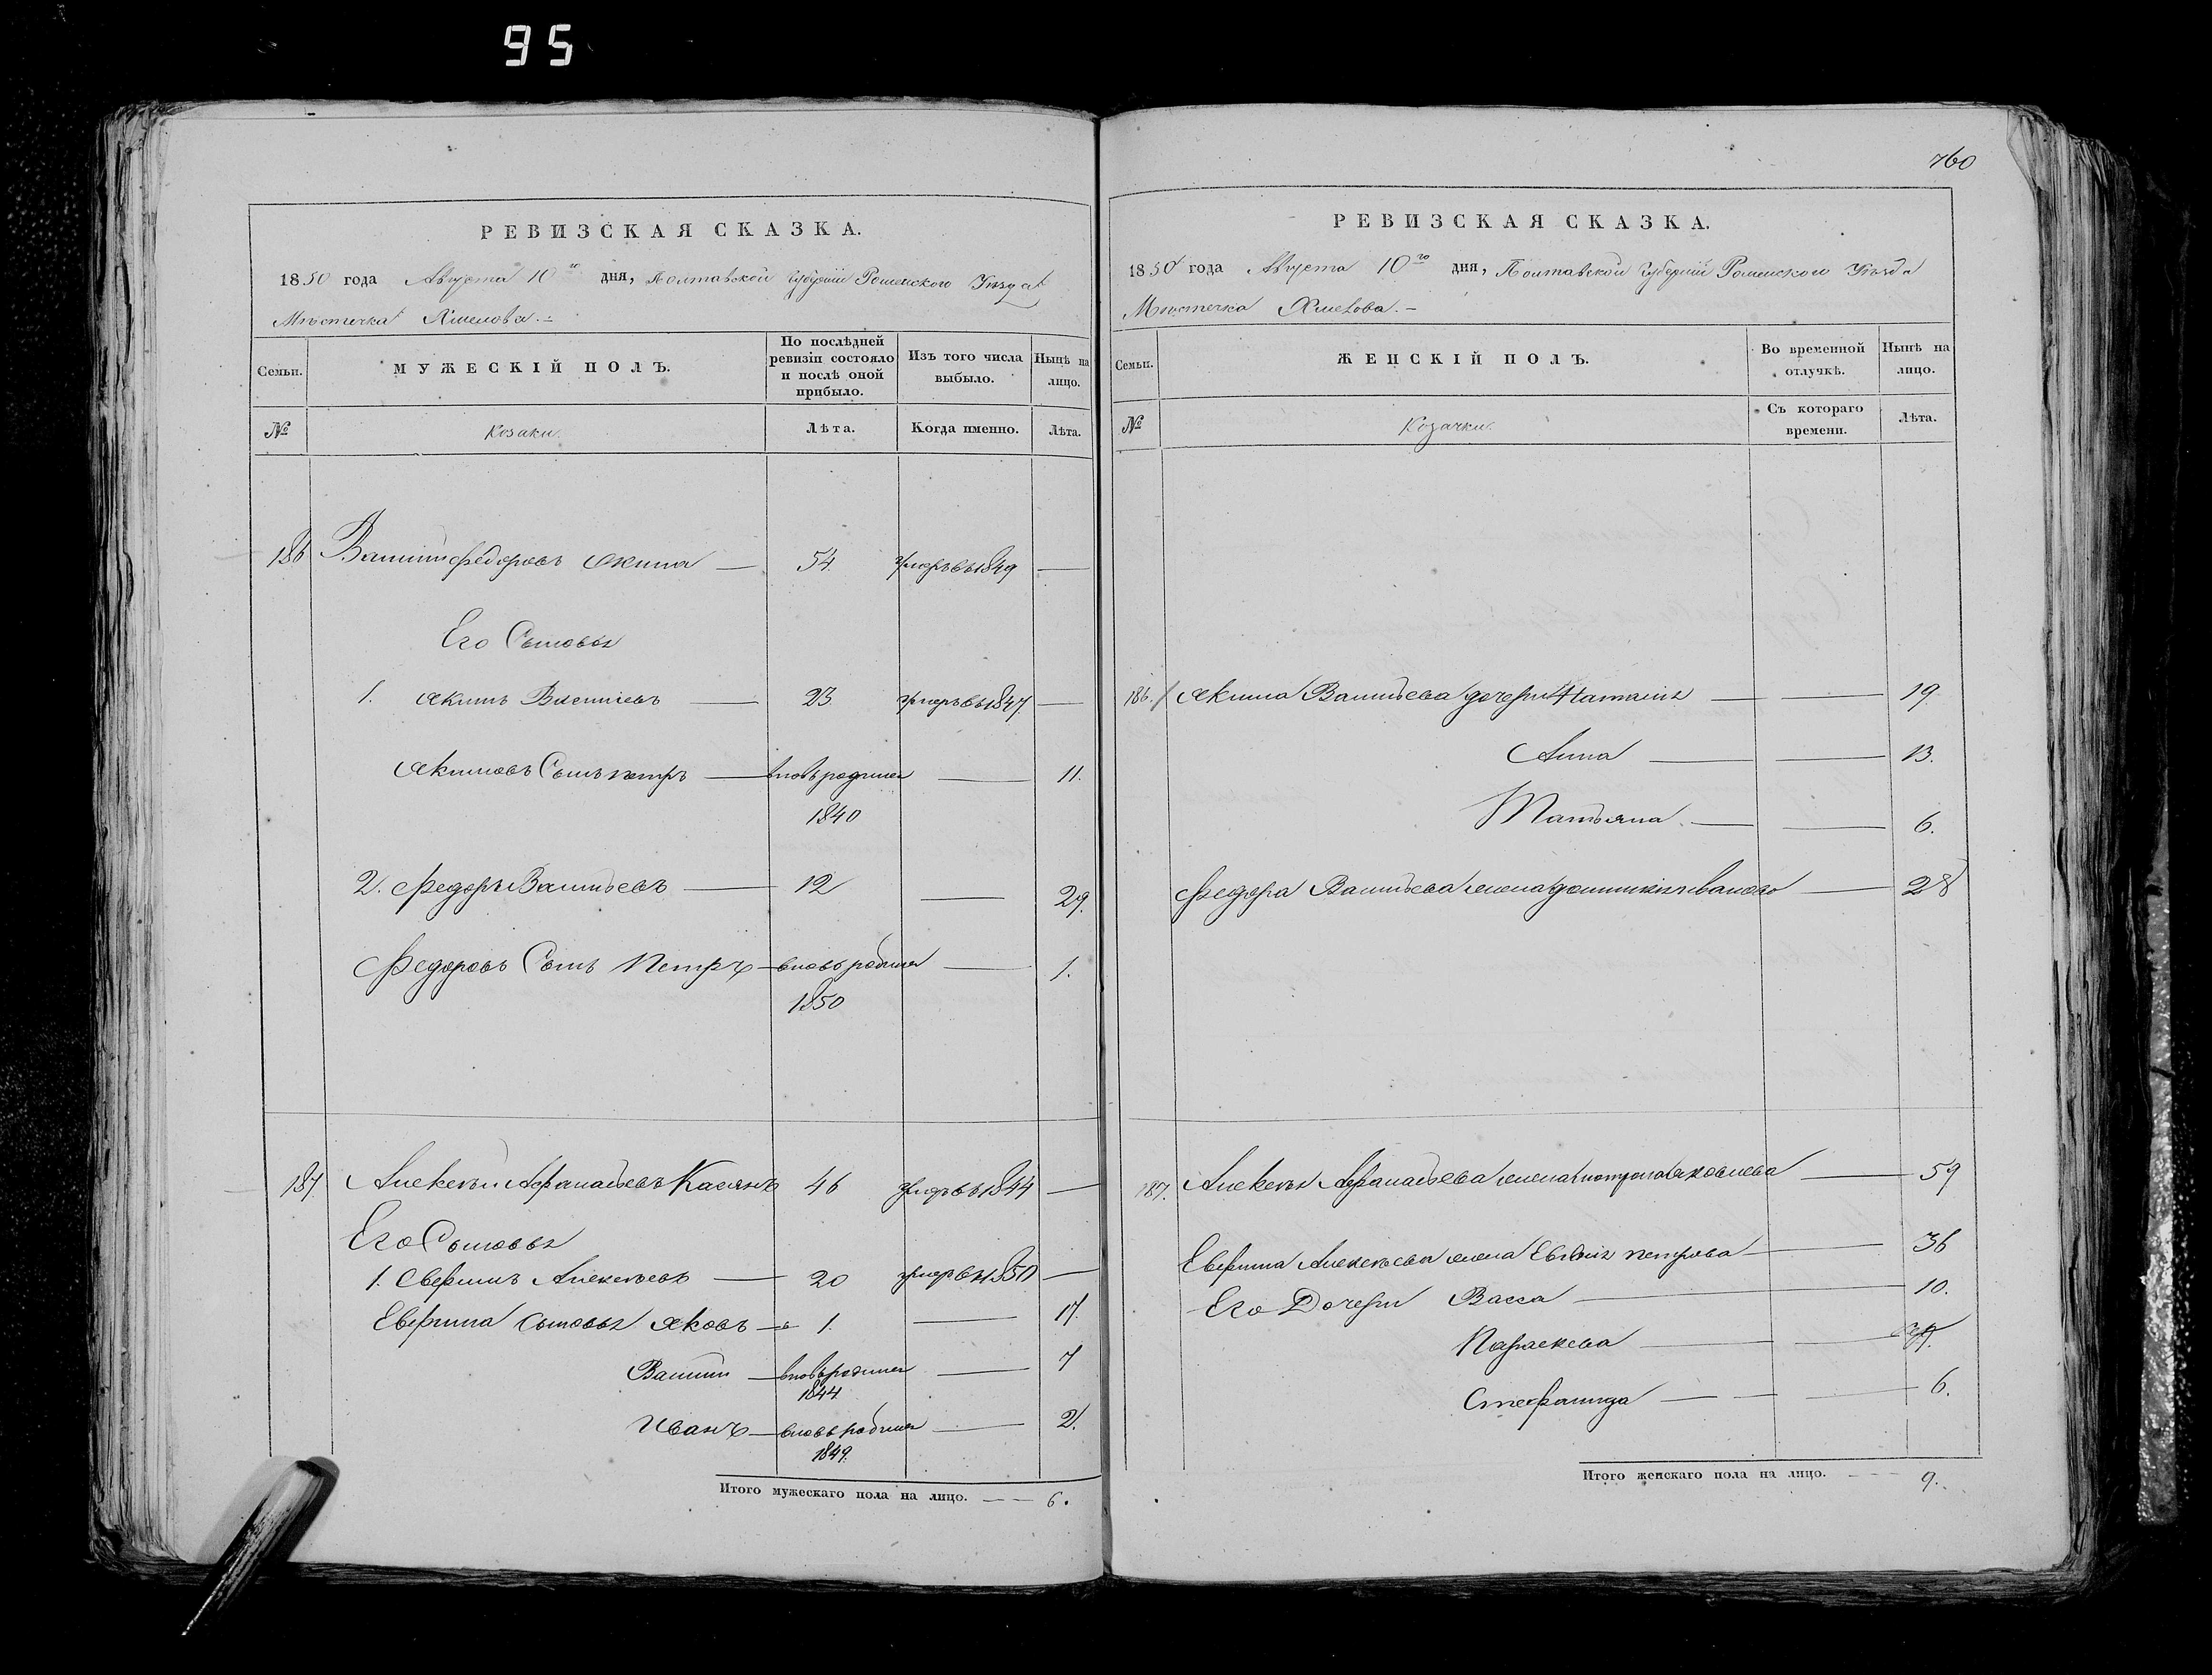 95
РЕВИЗСКАЯ СКАЗКА.
1850 года Августа 10го дня, Полтавской Губерніи Роменского Уезда
Местечка Хмелова. -
Семьи.
МУЖЕСКІЙ ПОЛЪ.
По послѣдней ревизіи состояло и послѣ оной прибыло.
Изъ того числа выбыло.
Нынѣ на лицо.
№
Козаки.
Лѣта.
Когда именно.
Лѣта.
186 Василий Федоровъ 54 умеръ въ 1849 —
Его Сыновья
1. Акимъ Васильевъ — 23 умеръ въ 1847 —
Акимовъ Сынъ петръ — вновь родился — 11.
1840
2. Федоръ Васильевъ — 12 — 29.
Федоровъ Сынъ Петръ — вновь родился — 1.
1850
187 Алексѣй Афанасьевъ Касянъ 46 умеръ въ 1844 —
Его Сыновья
1. Алексѣевъ — 20 умеръ въ 1850 —
сыновья Яковъ — 1. — 17.
Василий — вновь родился — 7
1844
Иванъ — вновь родился — 2.
1849.
Итого мужескаго пола на лицо. — — 6.
760
РЕВИЗСКАЯ СКАЗКА.
1850 года Августа 10го дня, Полтавской Губерніи Роменского Уезда
Местечка Хмелова. -
Семьи.
ЖЕНСКІЙ ПОЛЪ.
Во временной отлучкѣ.
Нынѣ на лицо.
№
Козачки.
Съ котораго времени.
Лѣта.
186. 1 Акима Васильева дочери Наталия — — 19
Анна — — 13.
Татьяна. — — 6.
Федора Васильева жена — 28
187. Алексея Афанасьева жена Яковлева — 59
Алексѣева жена Евдокия петрова — 36
Его Дочери Васса — 10.
Параскева — —
Стефанида — — — 6.
Итого женскаго пола на лицо. — — 9.